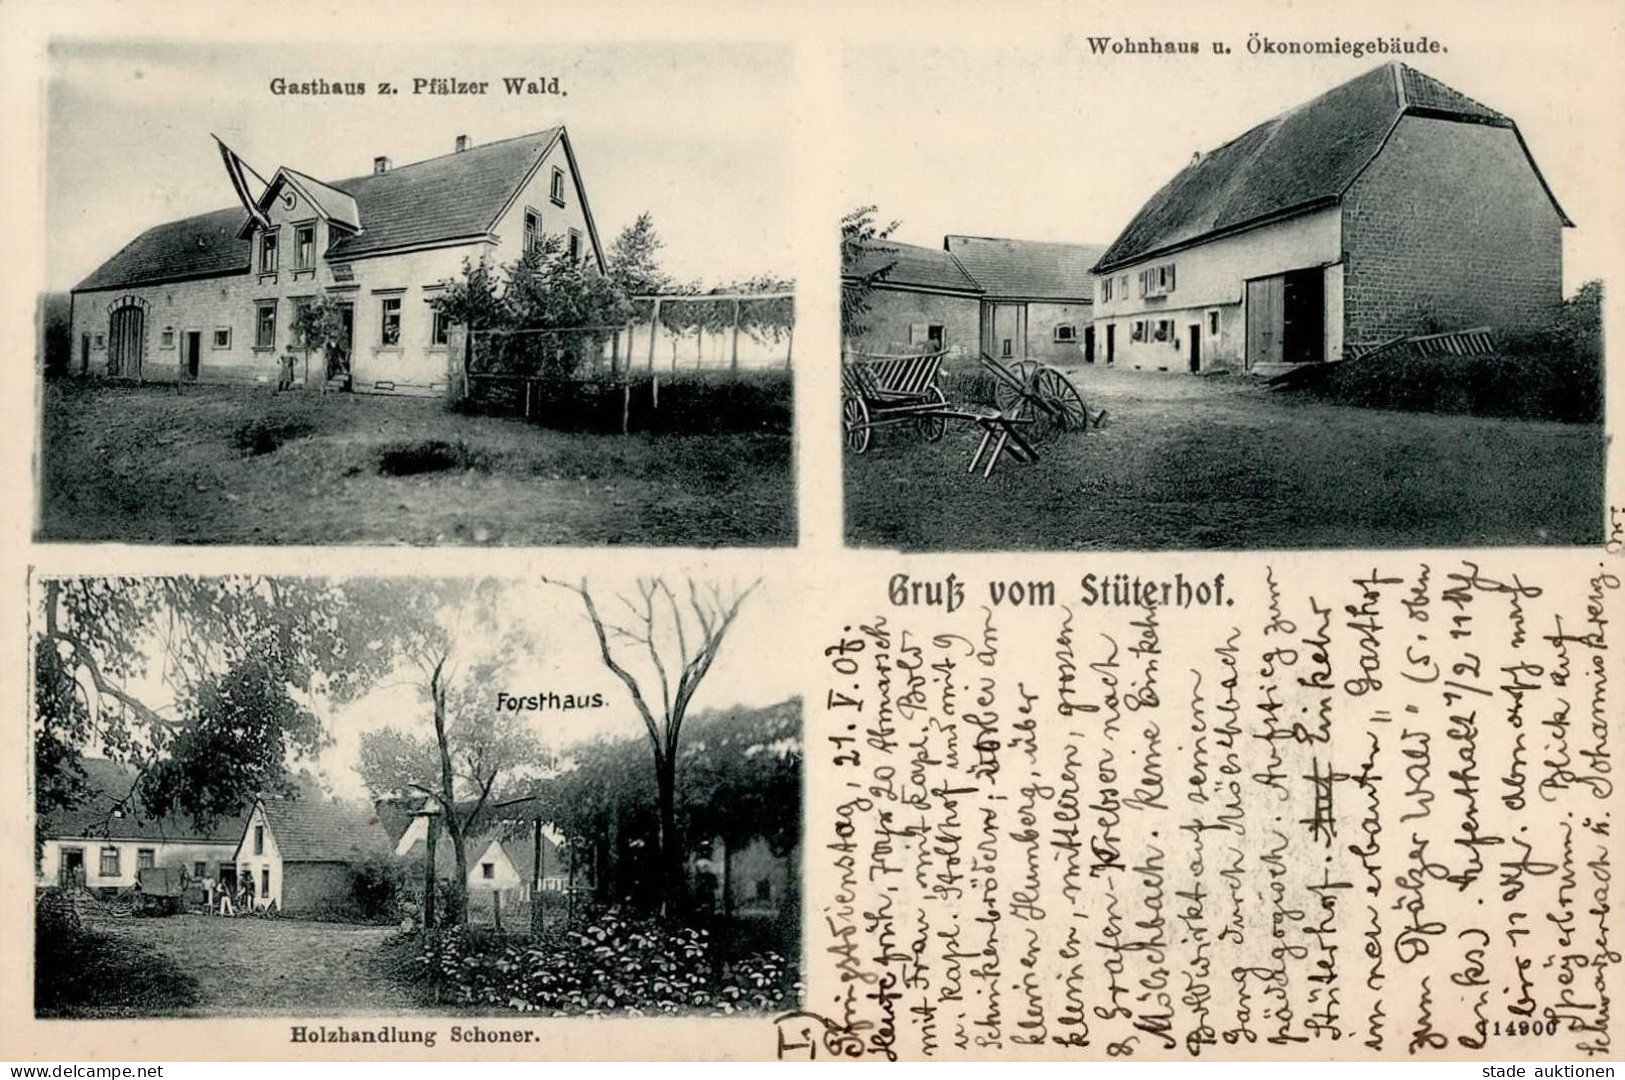 Gasthaus z. Pfälzer Wald.
Wohnhaus u. Ökonomiegebäude.
Forsthaus.
Holzhandlung Schoner.
Gruß vom Stüterhof.
I.)
Pfingstdienstag, 21. V. 07.
Heute früh, 7 Uhr 20 Abmarsch
mit Frau, mit Kapl. Bold
u. Kapl. Stollhof und mit 9
Schinkenbrödern, vorbei am
kleinen Humberg, über
kleinen, mittleren, grossen
Krebser nach
Mölschbach. Keine Einkehr
Boldwirkt auf seinem
Gang durch Mölschbach
pädagogisch. Aufstieg zum
Stüterhof. Auf Einkehr
im neu erbauten „Gasthof
zum Pfälzer Wald" (s. oben
links). Aufenthalt 1/2 11 Uhr
bis 11 Uhr. dann auf nach
Speyerbrunn. Blick auf
Schwanzerbach u. Johanniskreuz.
14900
stade auktionen